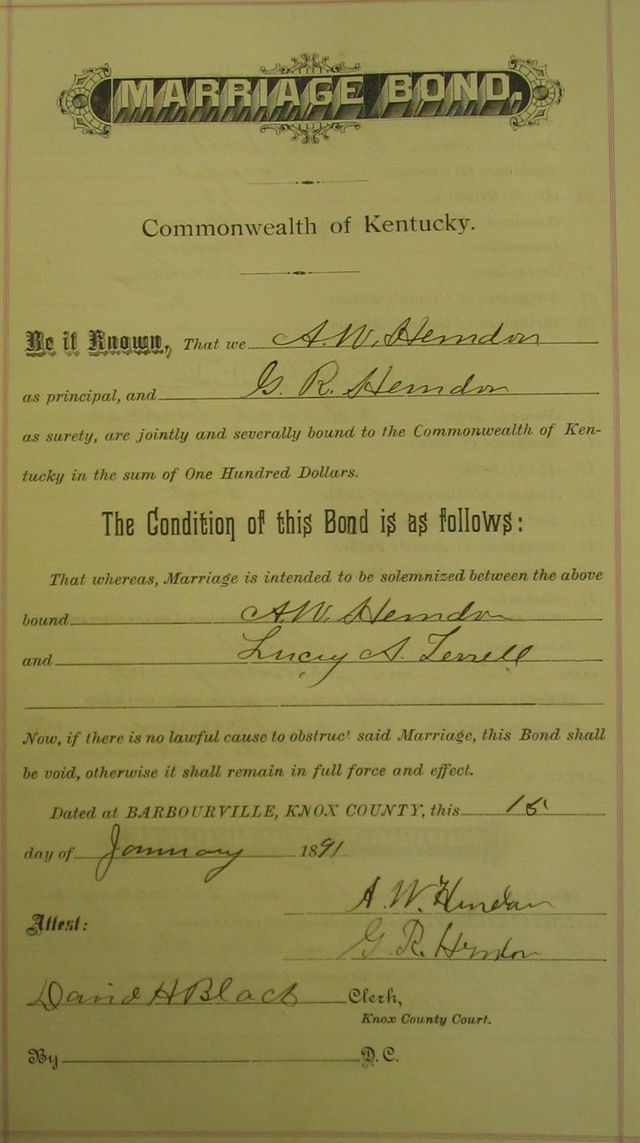 MARRIAGE BOND.
Commonwealth of Kentucky.
Be it Known, That we A. W. Herndon
as principal, and G. R. Herndon
as surety, are jointly and severally bound to the Commonwealth of Ken-
tucky in the sum of One Hundred Dollars.
The Condition of this Bond is as follows:
That whereas, Marriage is intended to be solemnized between the above
bound A. W. Herndon
and Lucy A. Terrell
Now, if there is no lawful cause to obstruct said Marriage, this Bond shall
be void, otherwise it shall remain in full force and effect.
Dated at BARBOURVILLE, KNOX COUNTY, this 15
day of January 1891
A. W. Herndon
Attest:
G. R. Herndon
David H Black Clerk,
Knox County Court.
By D. C.